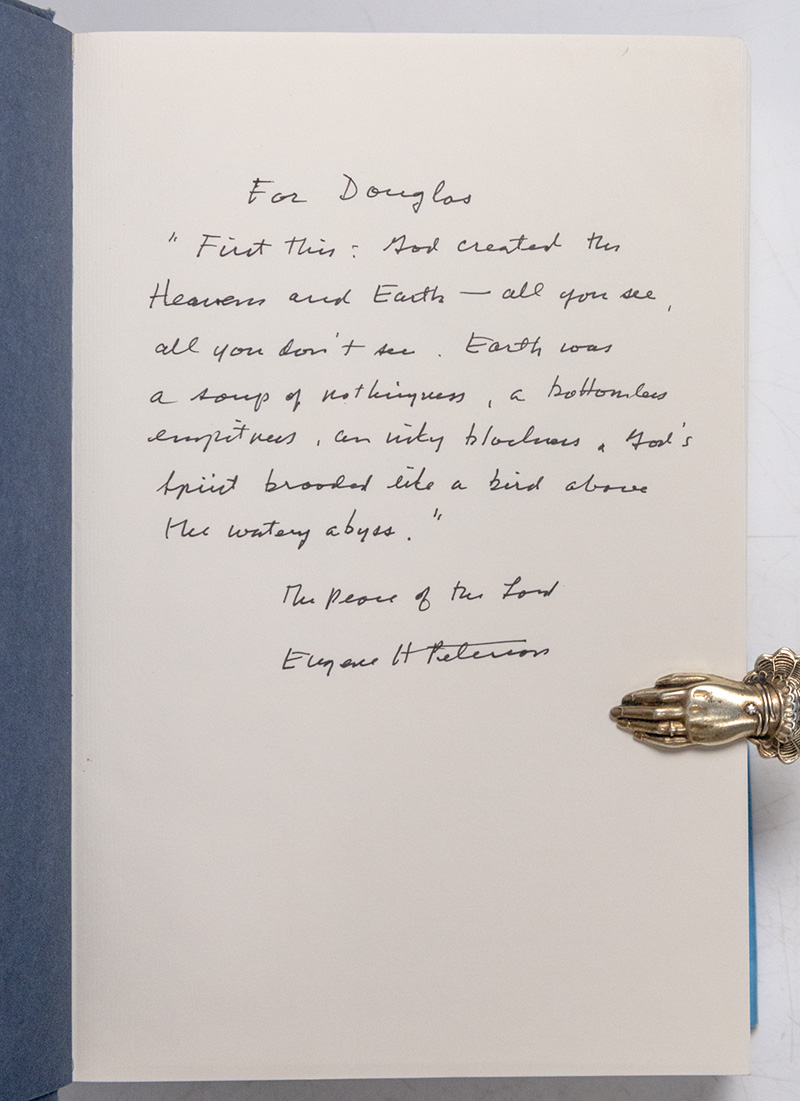 For Douglas
" First this : God created the
Heavens and Earth — all you see ,
all you don't see . Earth was
a soup of nothingness , a bottomless
emptiness , an inky blackness . God's
Spirit brooded like a bird above
the watery abyss . "
The peace of the Lord
Eugene H Peterson